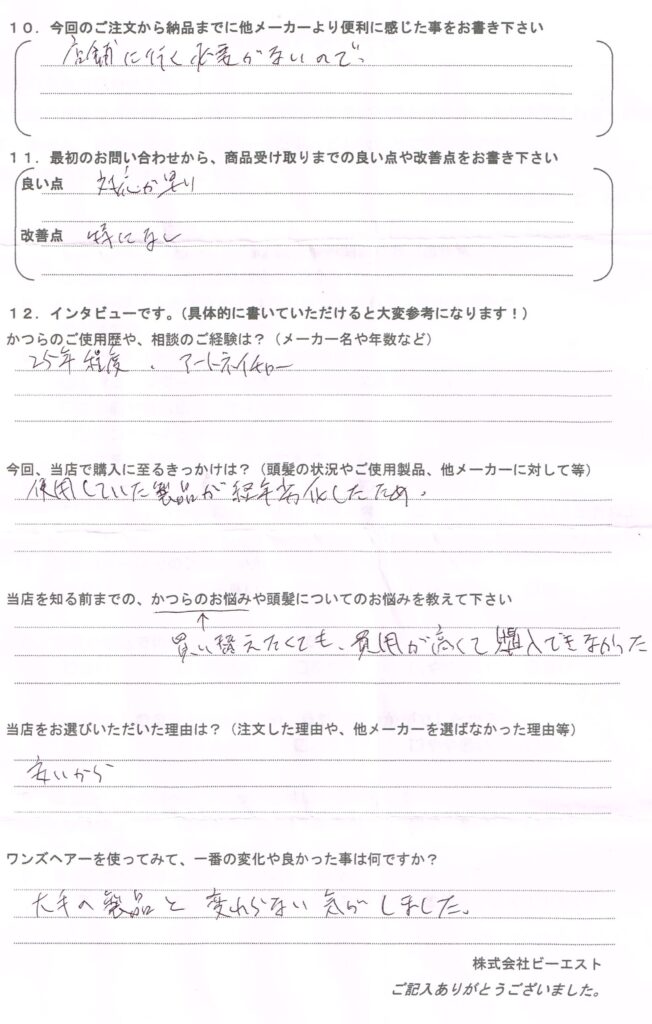 １０．今回のご注文から納品までに他メーカーより便利に感じた事をお書き下さい
店舗に行く必要がないので。
１１．最初のお問い合わせから、商品受け取りまでの良い点や改善点をお書き下さい
良い点 対応が早い
改善点 特になし
１２．インタビューです。（具体的に書いていただけると大変参考になります！）
かつらのご使用歴や、相談のご経験は？（メーカー名や年数など）
25年程度．アートネイチャー
今回、当店で購入に至るきっかけは？（頭髪の状況やご使用製品、他メーカーに対して等）
使用していた製品が経年劣化したため．
当店を知る前までの、かつらのお悩みや頭髪についてのお悩みを教えて下さい
↑
買い替えたくても、費用が高くて購入できなかった
当店をお選びいただいた理由は？（注文した理由や、他メーカーを選ばなかった理由等）
安いから
ワンズヘアーを使ってみて、一番の変化や良かった事は何ですか？
大手の製品と変わらない気がしました。
株式会社ビーエスト
ご記入ありがとうございました。